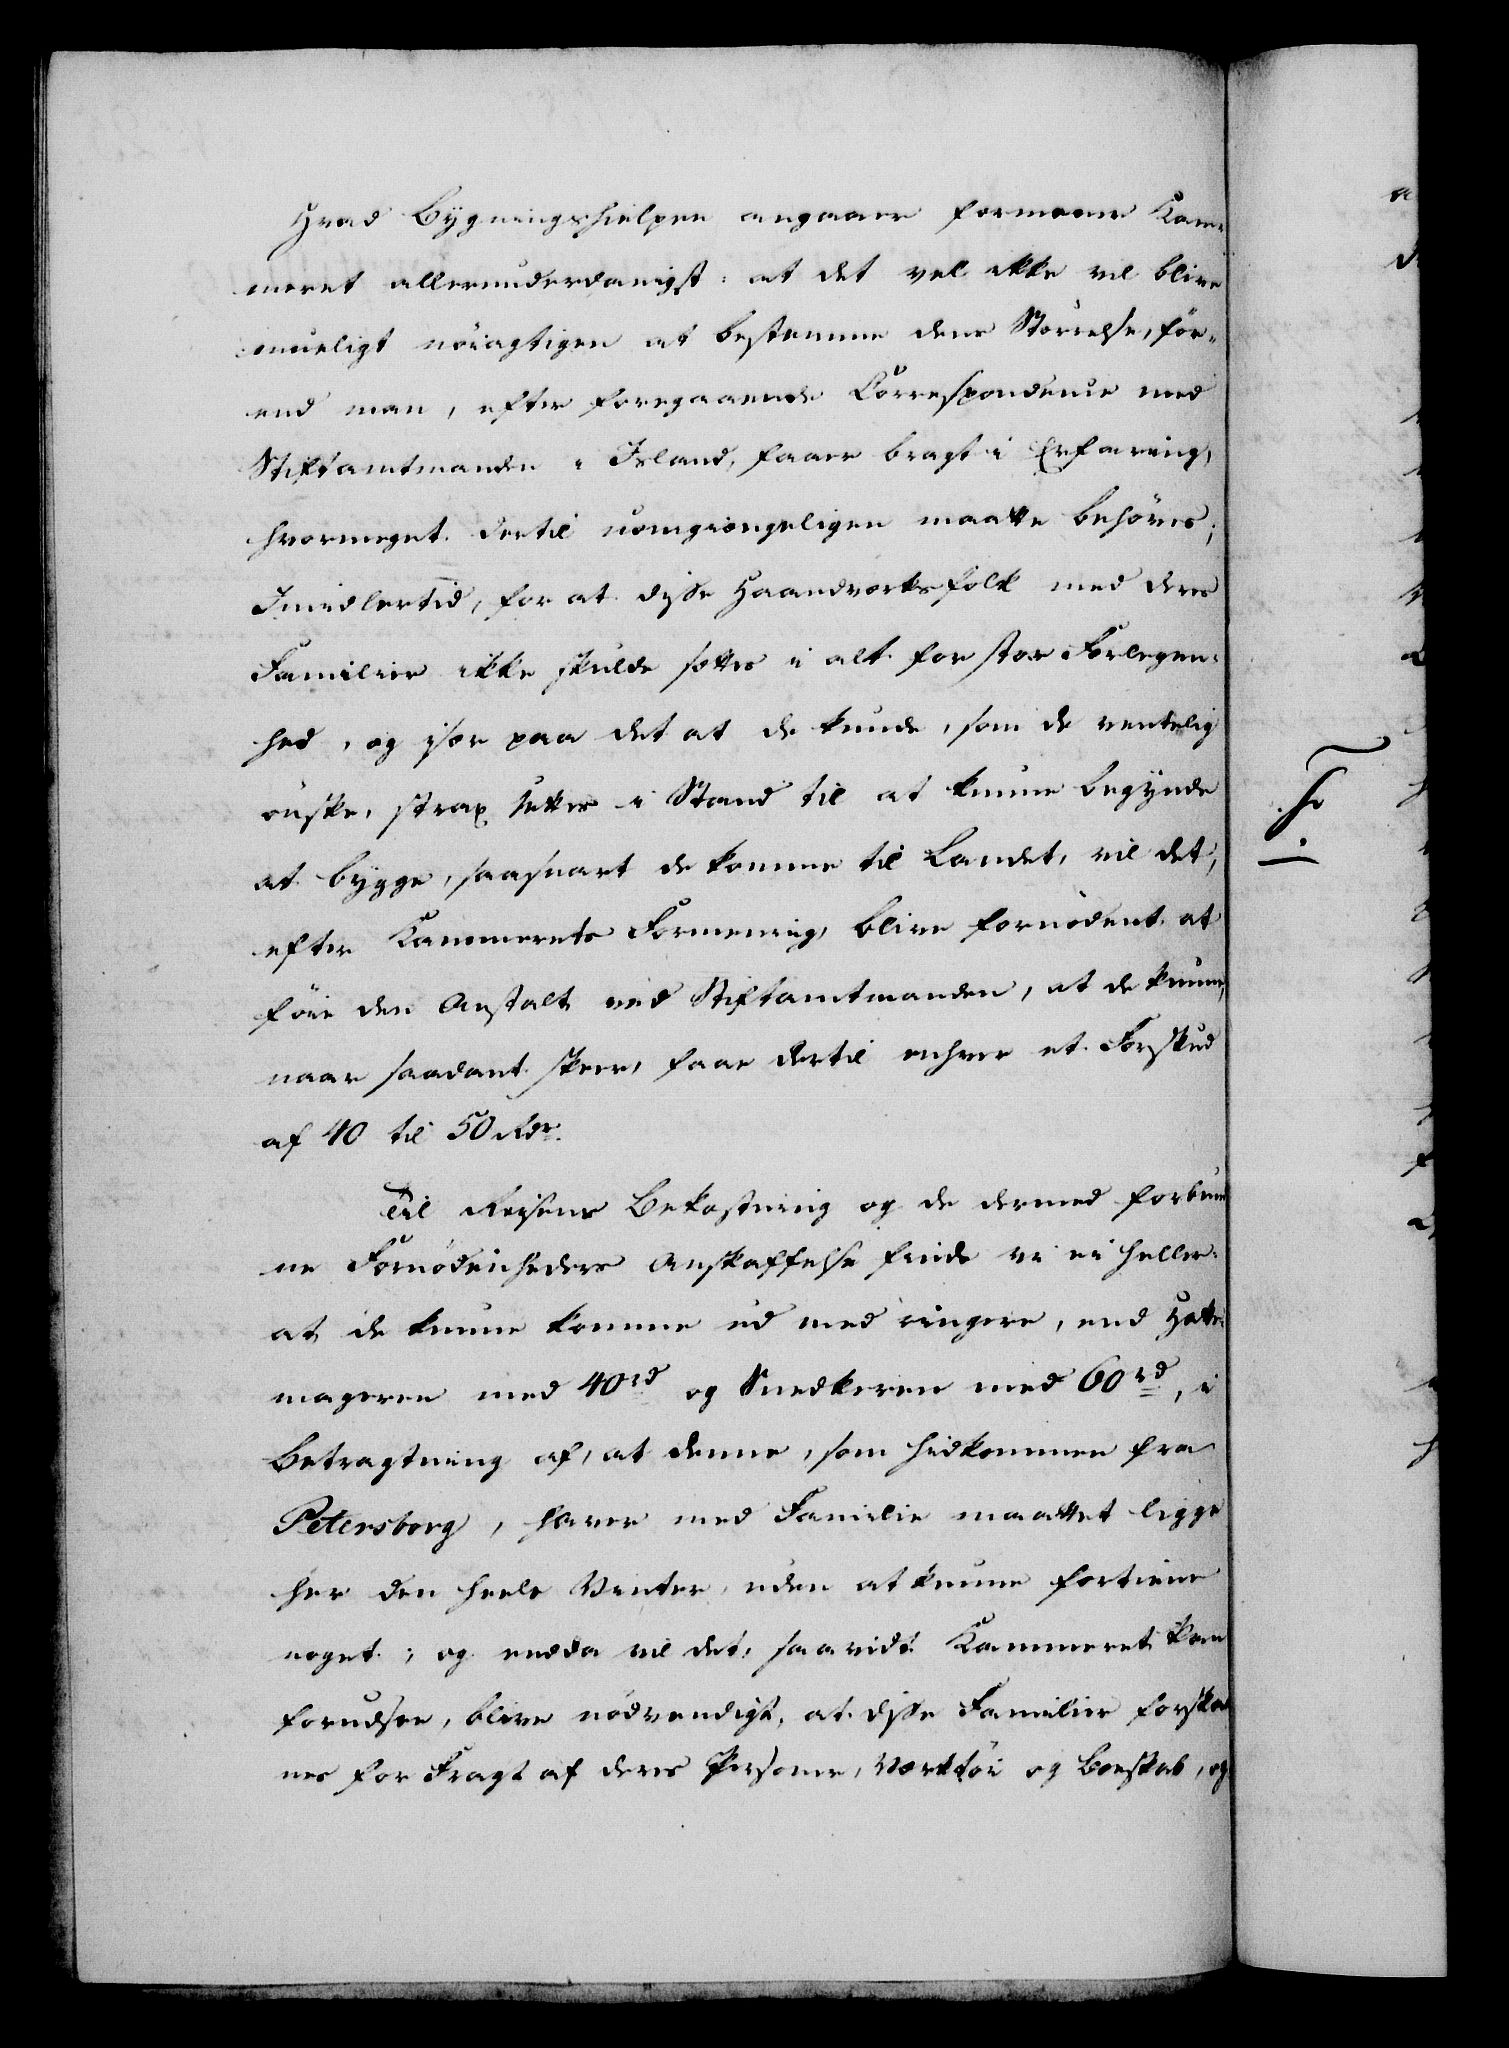 Hvad Bÿgningshielpen angaaer formener Kam-
meret allerunderdanigst: at det vel ikke vil blive
mueligt nöiagtigen at bestemme dens Störrelse, för-
end man, efter foregaaende Correspondence med
Stiftamtmanden i Island, faaer bragt i Erfaring,
hvormeget dertil uomgiengeligen maatte behöves;
Imidlertid, for at disse Haandverksfolk med deres
Familier ikke skulde settes i alt for stor Forlegen-
hed, og især paa det at de kunde, som de ventelig
önske, strax settes i Stand til at kunne begÿnde
at bÿgge, saasnart de komme til Landet, vil det,
efter Kammerets Formening, blive fornödent at
föie den Anstalt ved Stiftamtmanden, at de kunne,
naar saadant skeer, faae dertil enhver et Forskud
af 40 til 50 Rdr.
Til Reisens Bekostning og de dermed forbun
ne Fornödenheders Anskaffelse finde vi ei heller
at de kunne komme ud med ringere, end Hatte-
mageren med 40rd og Snedkeren med 60rd, i
Betragtning af, at denne, som hidkommen fra
Petersborg, haver med Familie maattet ligge
her den heele Vinter, uden at kunne fortiene
noget; og endda vil det, saavidt Kammeret kan
forudsee, blive nödvendigt, at disse Familier forskaa
nes for Fragt af deres Persone, Værktöi og Boeskab, og